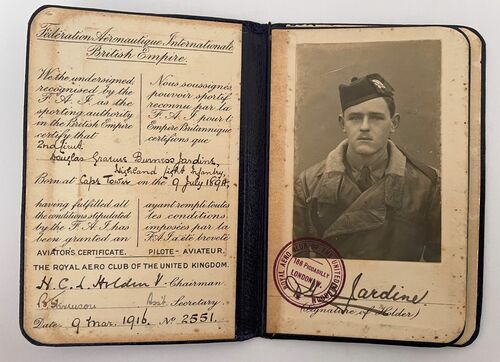 Fédération Aéronautique Internationale
British Empire.
We the undersigned
recognised by the
F. A. I. as the
sporting authority
in the British Empire
certify that
2nd Lieut
Nous soussignés
pouvoir sportif
reconnu par la
F. A. I. pour l'
Empire Britannique
certifions que
Douglas Graeme Burness Jardine,
Highland Light Infantry,
Born at Cape Town on the 9 July 1894
having fulfilled all
the conditions stipulated
by the F. A. I. has
been granted an
AVIATOR'S CERTIFICATE.
ayant rempli toutes
les conditions
imposées par la
F.A.I. a été breveté
PILOTE-AVIATEUR.
THE ROYAL AERO CLUB OF THE UNITED KINGDOM.
Chairman
Secretary
Date 9 Mar. 1916. No 2551.
166 PICCADILLY
LONDON W.
Jardine
(Signature of Holder)